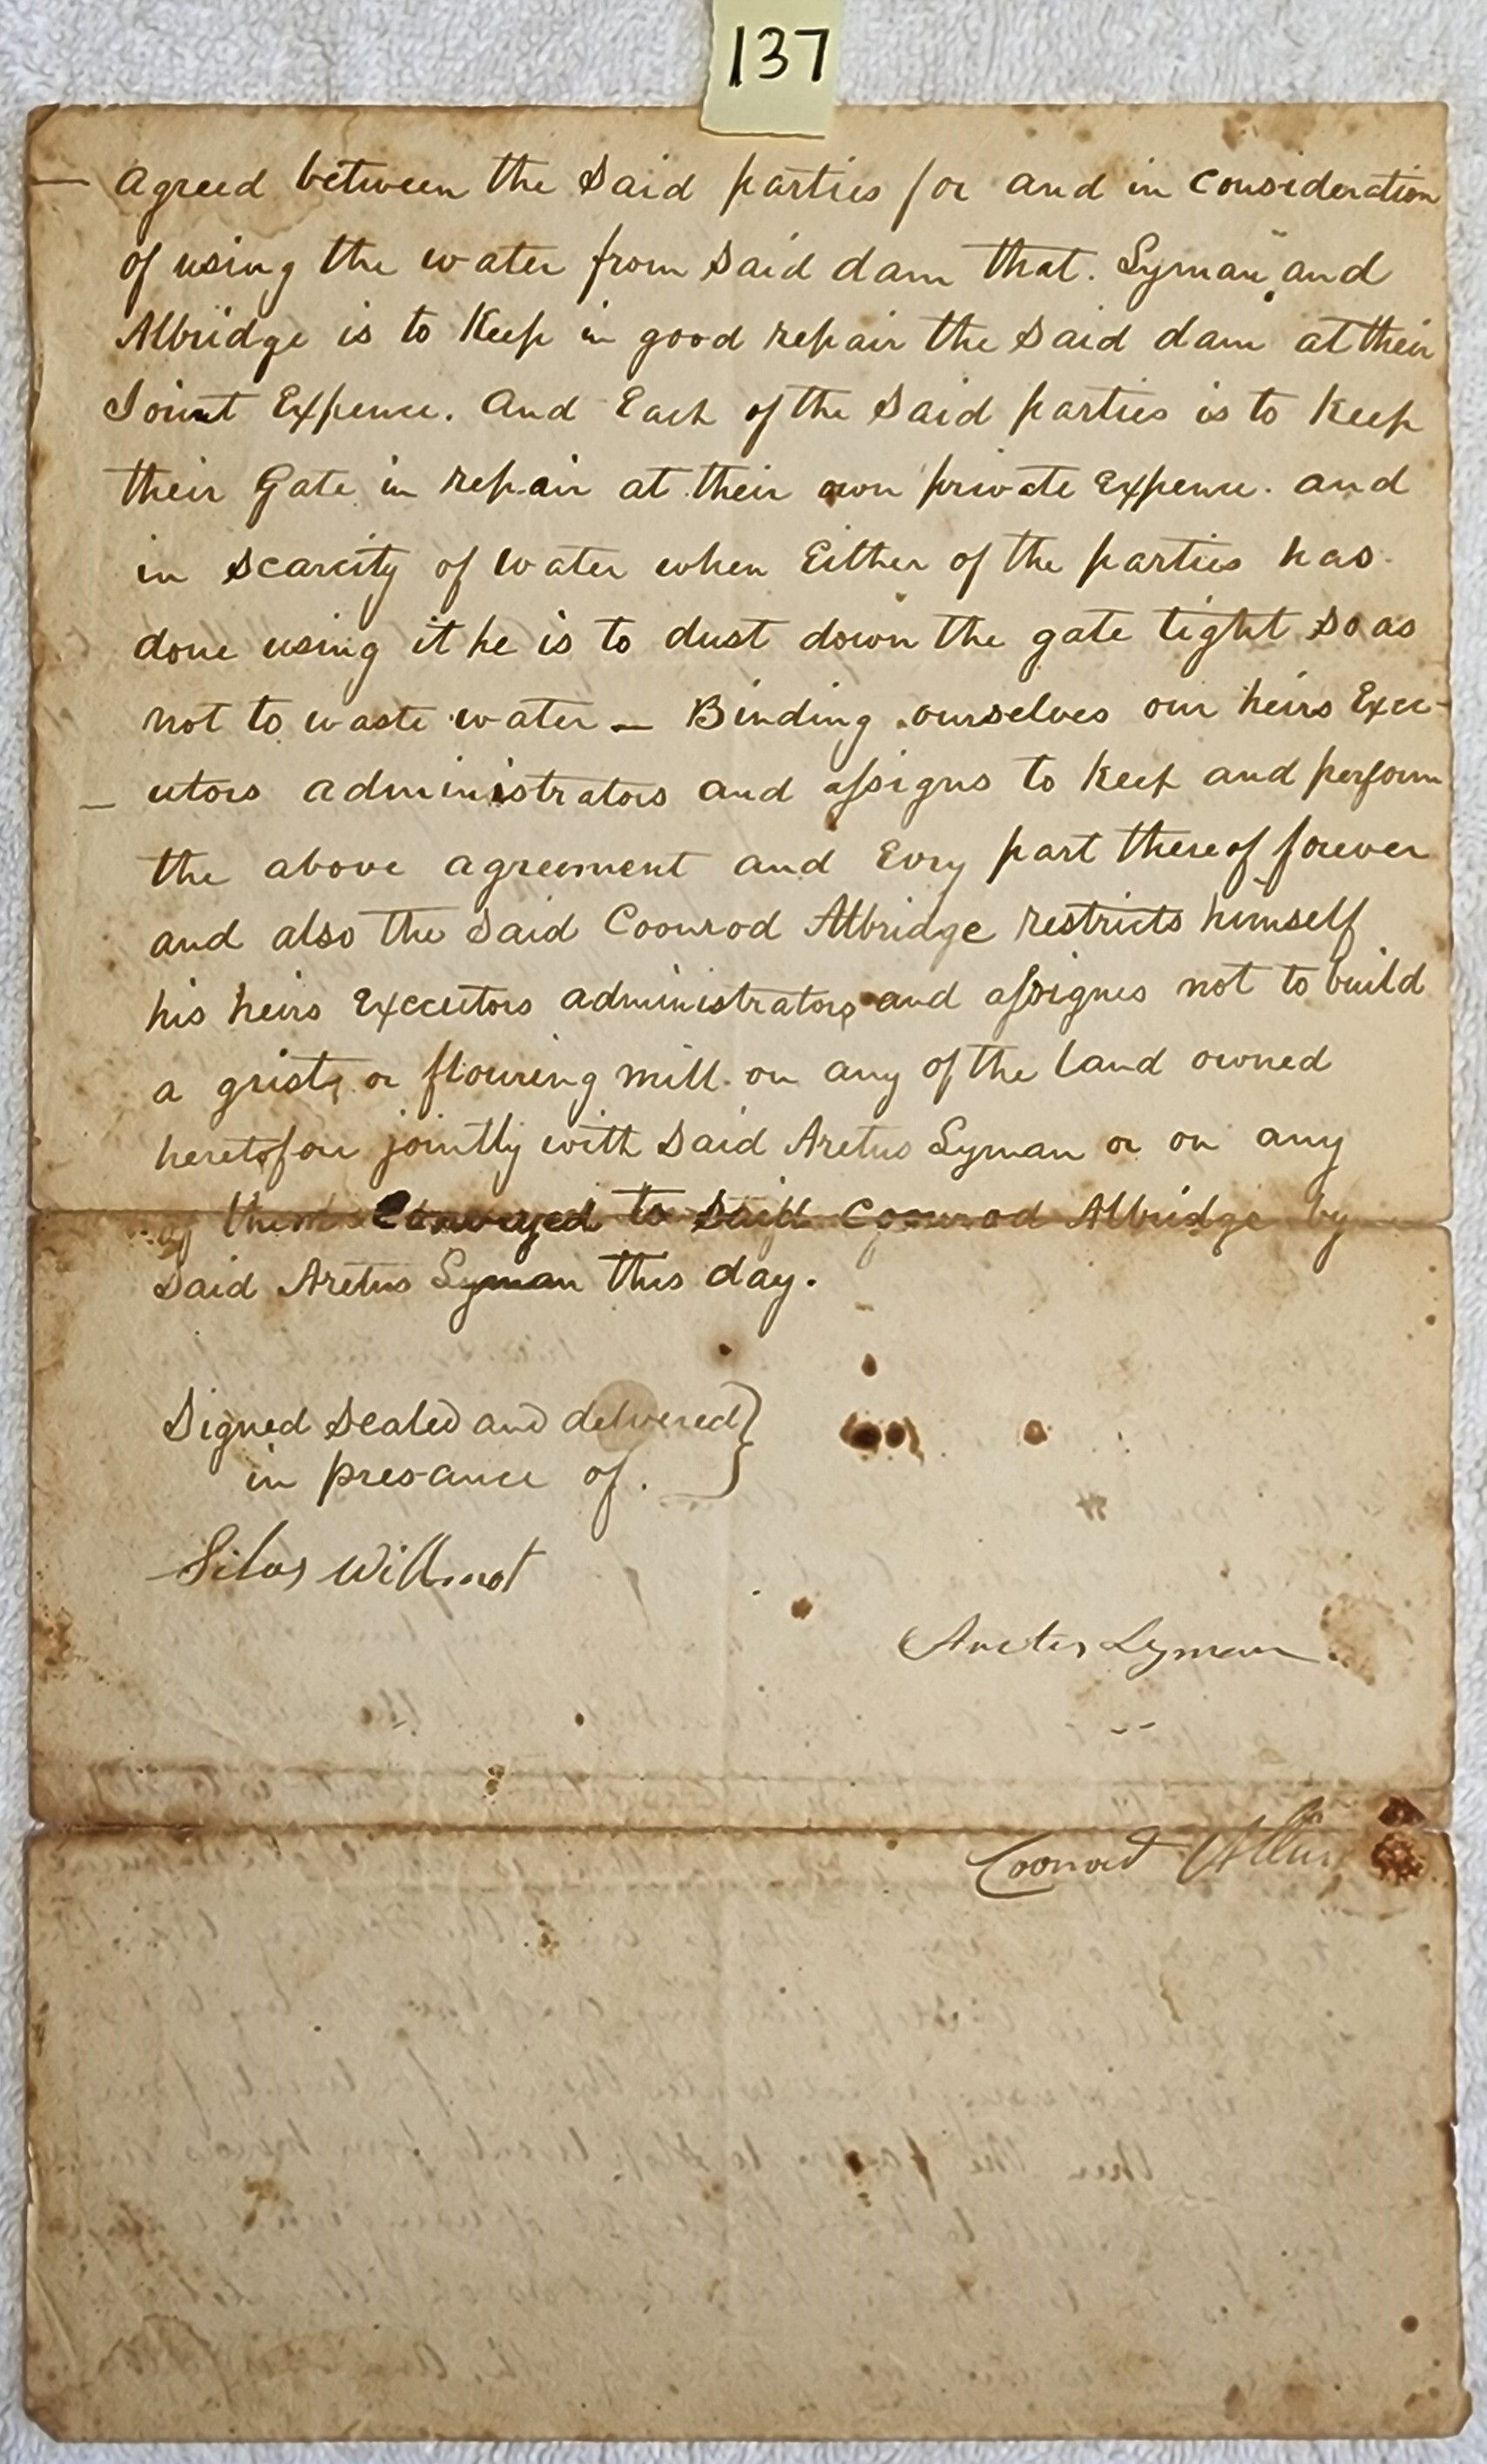 137
— agreed between the Said parties for and in Consideration
of using the water from Said dam that. Lyman and
Albridge is to Keep in good repair the Said dam at their
Joint Expence. and Each of the Said parties is to Keep
their Gate in repair at their own private Expence. and
in scarcity of water when Either of the parties has
done using it he is to dust down the gate tight so as
not to waste water — Binding ourselves our heirs Exec-
— utors administrators and assigns to Keep and perform
the above agreement and Evry part thereof forever
and also the Said Coonrod Albridge restricts himself
his heirs Executors administrators and assignes not to build
a grist or flouring mill on any of the land owned
heretofore jointly with Said Aretus Lyman or on any
of them Conveyed to Said Coonrod Albridge by
Said Aretus Lyman this day.
Signed Sealed and delivered }
in presance of. }
Silas Willmot
Aretus Lyman
Coonrod